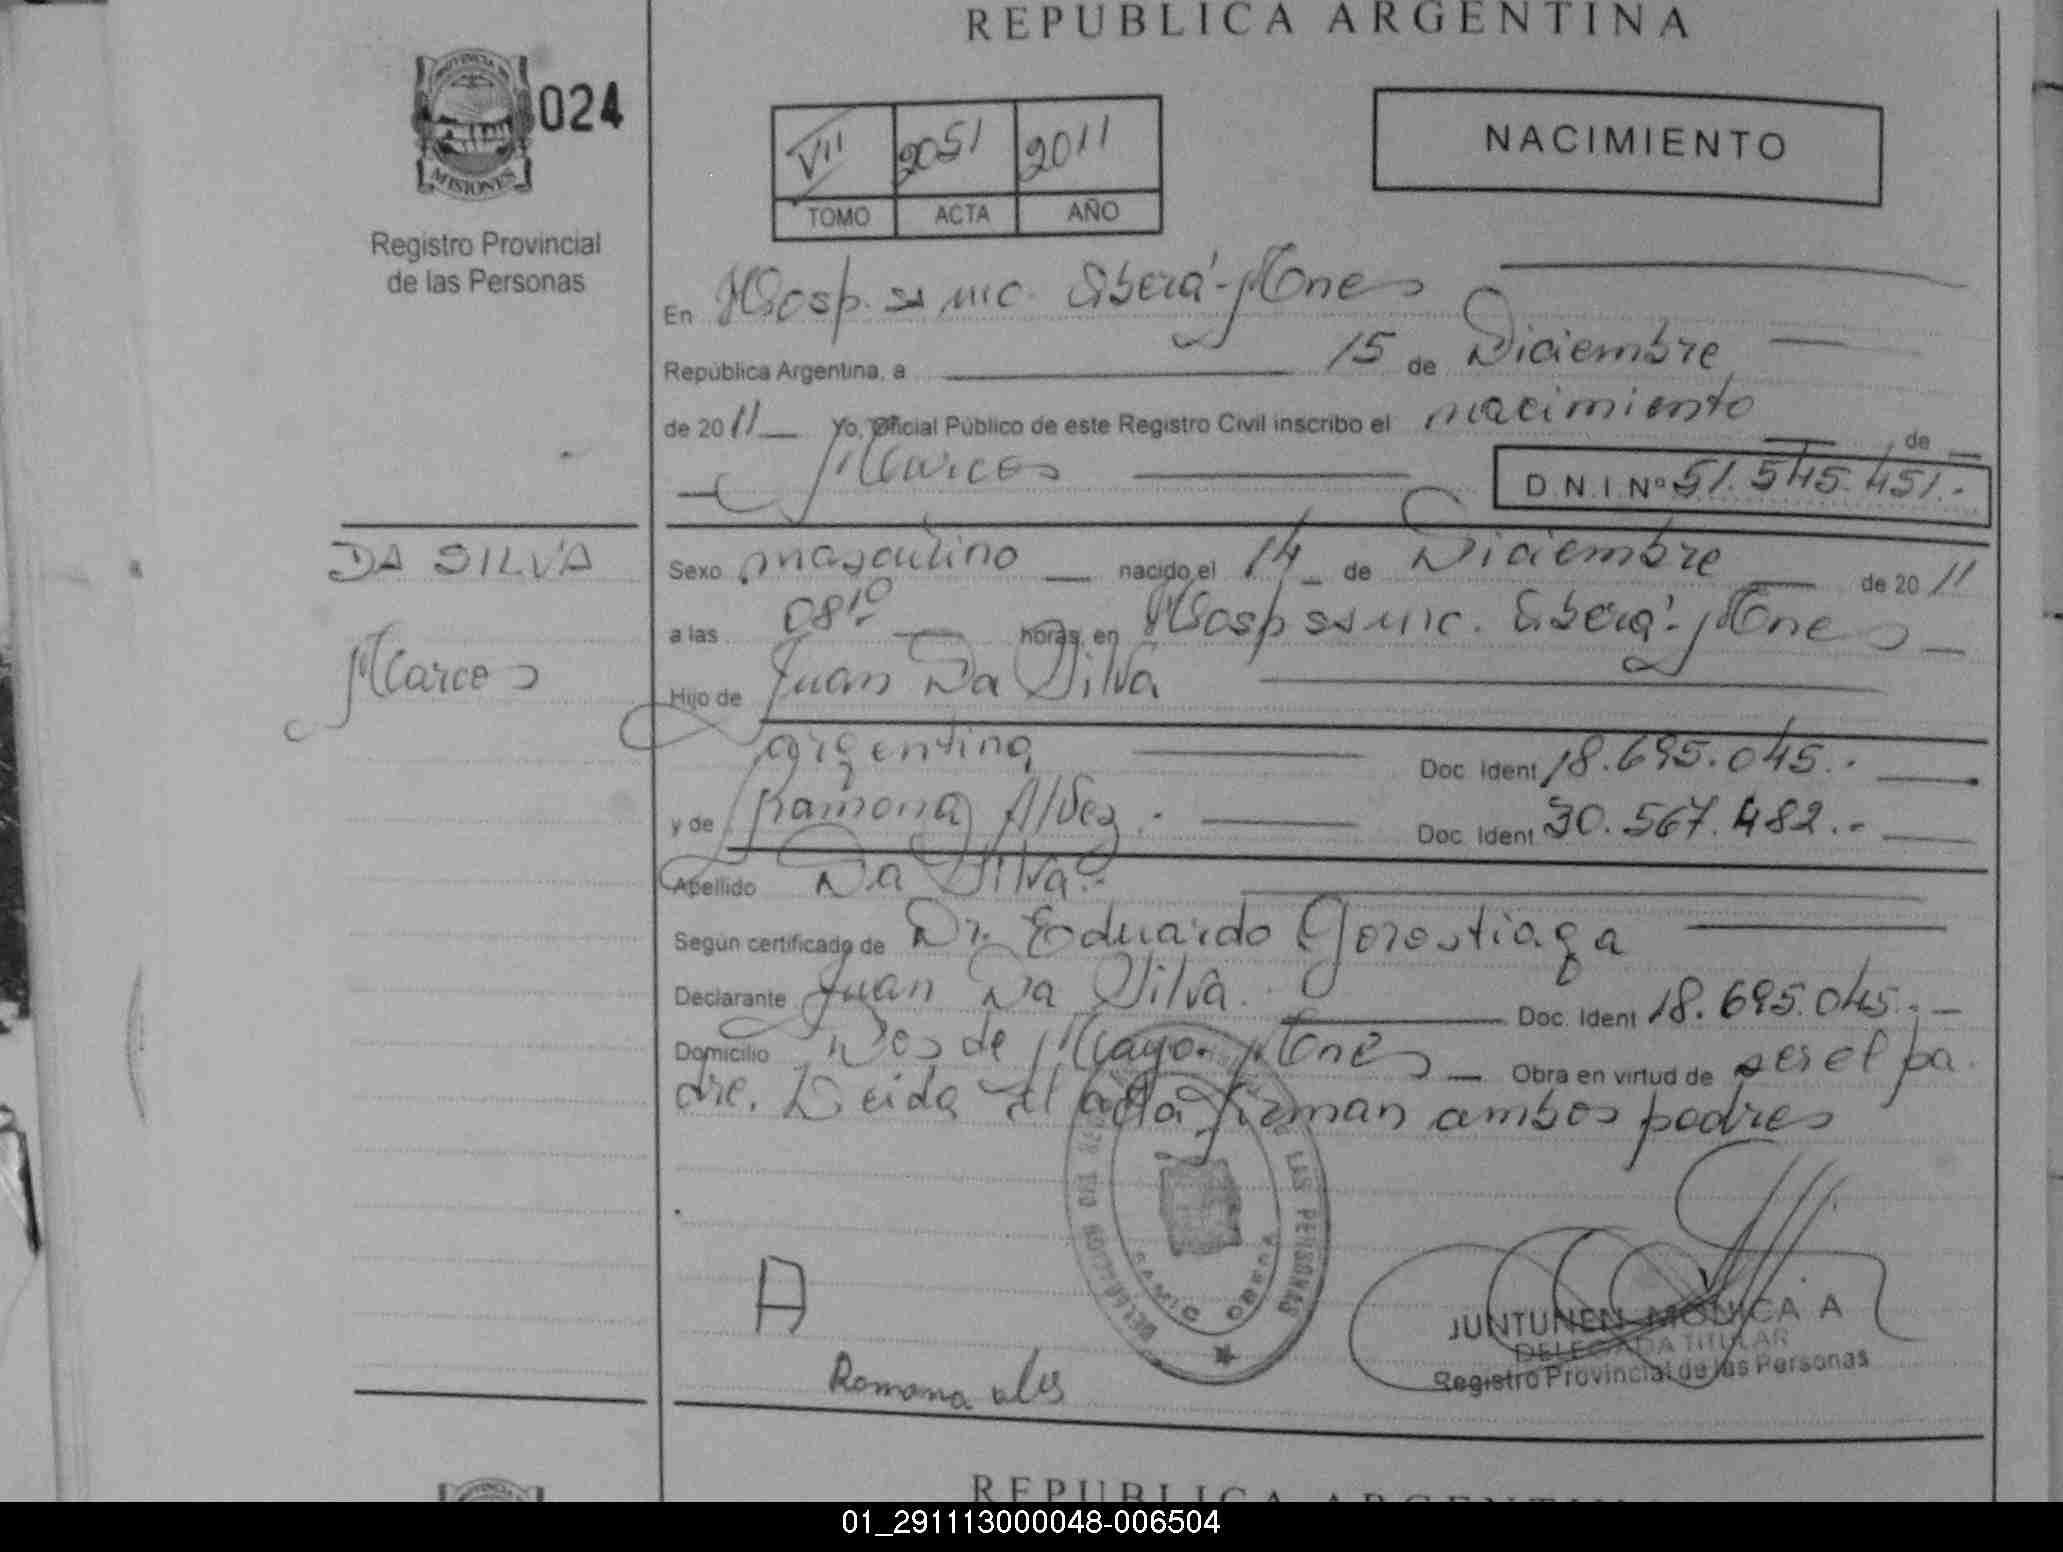 REPUBLICA ARGENTINA
PROVINCIA DE
MISIONES
024
Registro Provincial
de las Personas
VII 2051 2011
TOMO ACTA AÑO
NACIMIENTO
En Hosp. ss mc. Oberá - Mnes
República Argentina, a 15 de Diciembre
de 2011 Yo, Oficial Público de este Registro Civil inscribo el nacimiento de
Marcos
D.N.I. Nº 51.545.451.-
DA SILVA
Marcos
Sexo masculino nacido el 14 de Diciembre de 2011
a las 08¹⁰ horas, en Hosp ss mc. Oberá - Mnes
Hijo de Juan Da Silva
argentina Doc. Ident 18.695.045.-
y de Ramona Alvez.- Doc. Ident 30.567.482.-
Apellido Da Silva.-
Según certificado de Dr. Eduardo Gorostiaga
Declarante Juan Da Silva. Doc. Ident 18.695.045.-
Domicilio Dos de Mayo. Mnes Obra en virtud de ser el pa
dre. Leida el acta firman ambos padres
DELEGACION DEL REG. LAS PERSONAS
A
Ramona
JUNTUNEN MONICA A
DELEGADA TITULAR
Registro Provincial de las Personas
REPUBLICA ARGENTINA
01_291113000048-006504